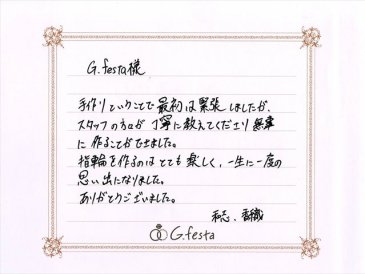 G.festa様
手作りということで最初は緊張しましたが、
スタッフの方々が丁寧に教えてくださり無事
に作ることができました。
指輪を作るのはとても楽しく、一生に一度の
思い出になりました。
ありがとうございました。
和志、香織
G.festa